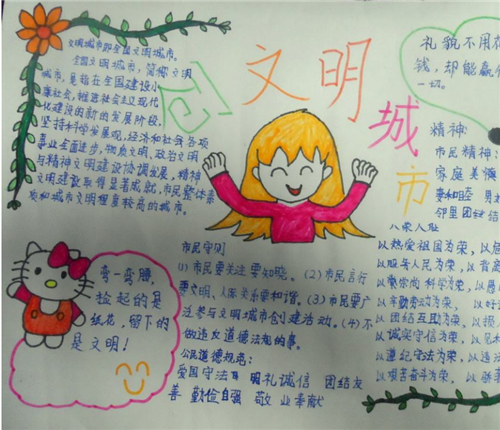 创文明城市
文明城市即全国文明城市。
全国文明城市，简称文明
城市，是指在全国建设小
康社会，推进社会主义现代
化建设的新的发展阶段，
坚持科学发展观，经济和社会各项
事业全面进步，物质文明、政治文明
与精神文明建设协调发展，精神
文明建设取得显著成就，市民整体素
质和城市文明程度较高的城市。
礼貌不用花
钱，却能赢得
一切。
精神:
市民精神
家庭美德
妻和睦 男
邻里团结
八荣八耻
以热爱祖国为荣，以危
以服务人民为荣，以背
以崇尚科学为荣，以愚
以辛勤劳动为荣，以好
以团结互助为荣，以损
以诚实守信为荣，以见
以遵纪守法为荣，以违
以艰苦奋斗为荣，以骄
弯一弯腰，
捡起的是
纸花，留下的
是文明！
市民守则
(1)市民要关注要知晓。(2)市民言行
要文明，人际关系要和谐。(3)市民要广
泛参与文明城市创建活动。(4)不
做违反道德法规的事。
公民道德规范:
爱国守法 明礼诚信 团结友
善 勤俭自强 敬业奉献